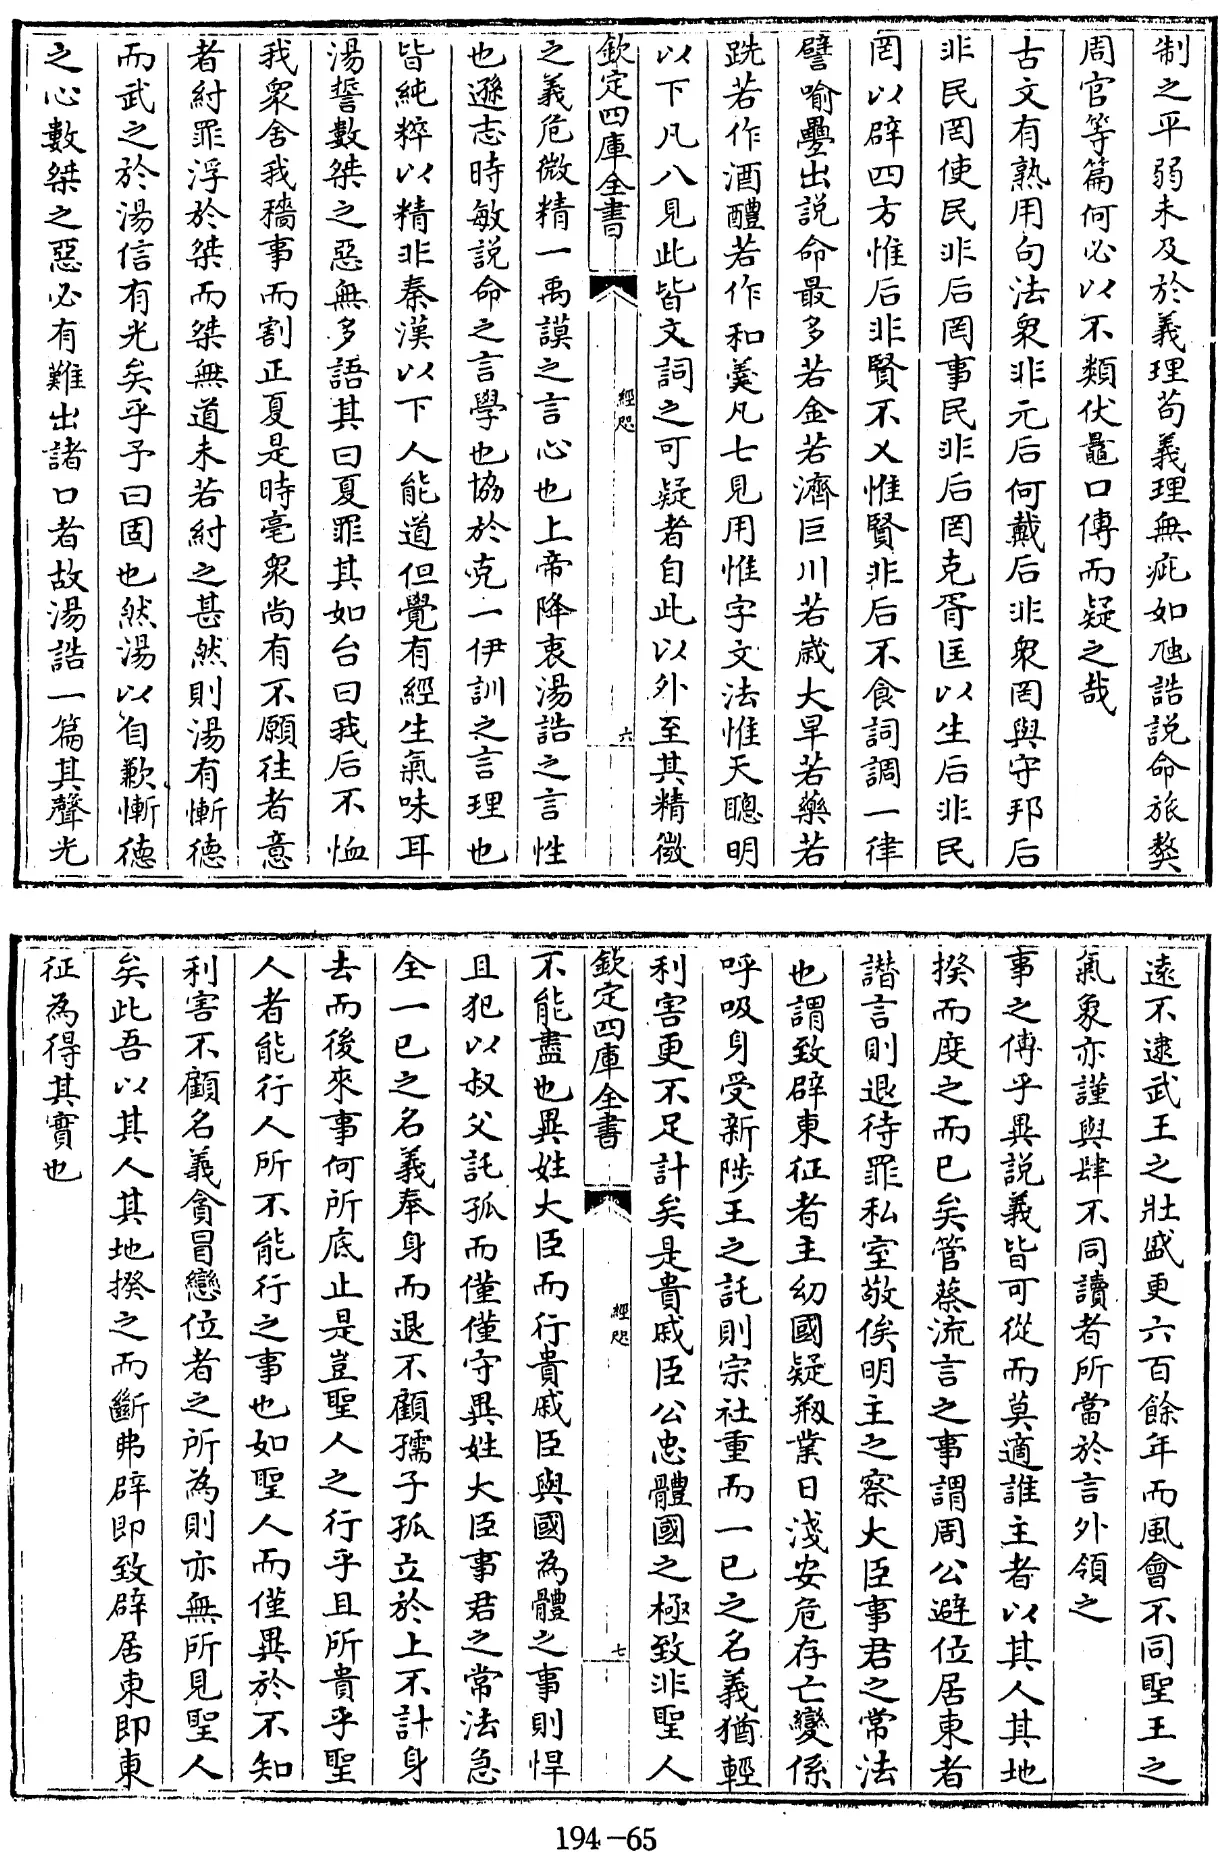 制之平弱未及於義理苟義理無疵如虺誥説命旅獒
周官等篇何必以不類伏鼂口傳而疑之哉
古文有熟用句法衆非元后何戴后非衆罔與守邦后
非民罔使民非后罔事民非后罔克胥匡以生后非民
罔以辟四方惟后非賢不乂惟賢非后不食詞調一律
譬喻疊出説命最多若金若濟巨川若歲大旱若藥若
跣若作酒醴若作和羹凡七見用惟字文法惟天聰明
以下凡八見此皆文詞之可疑者自此以外至其精微
欽定四庫全書
經咫
六
之義危微精一禹謨之言心也上帝降衷湯誥之言性
也遜志時敏説命之言學也協於克一伊訓之言理也
皆純粹以精非秦漢以下人能道但覺有經生氣味耳
湯誓數桀之惡無多語其曰夏罪其如台曰我后不恤
我衆舍我穡事而割正夏是時亳衆尚有不願往者意
者紂罪浮於桀而桀無道未若紂之甚然則湯有慚德
而武之於湯信有光矣乎予曰固也然湯以自歉慚德
之心數桀之惡必有難出諸口者故湯誥一篇其聲光
遠不逮武王之壯盛更六百餘年而風會不同聖王之
氣象亦謹與肆不同讀者所當於言外領之
事之傳乎異説義皆可從而莫適誰主者以其人其地
揆而度之而已矣管蔡流言之事謂周公避位居東者
譖言則退待罪私室敬俟明主之察大臣事君之常法
也謂致辟東征者主幼國疑剏業日淺安危存亡變係
呼吸身受新陟王之託則宗社重而一已之名義猶輕
利害更不足計矣是貴戚臣公忠體國之極致非聖人
欽定四庫全書
經咫
七
不能盡也異姓大臣而行貴戚臣與國為體之事則悍
且犯以叔父託孤而僅僅守異姓大臣事君之常法急
全一已之名義奉身而退不顧孺子孤立於上不計身
去而後來事何所底止是豈聖人之行乎且所貴乎聖
人者能行人所不能行之事也如聖人而僅異於不知
利害不顧名義貪冒戀位者之所為則亦無所見聖人
矣此吾以其人其地揆之而斷弗辟即致辟居東即東
征為得其實也
194-65